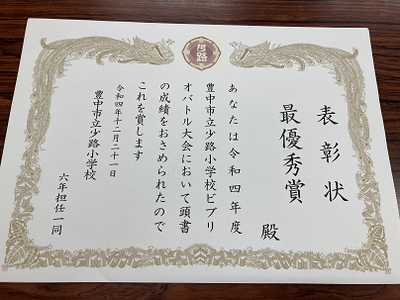 少路
表彰状
最優秀賞
殿
あなたは令和四年度
豊中市立少路小学校ビブリ
オバトル大会において頭書
の成績をおさめられたので
これを賞します
令和四年十二月二十一日
豊中市立少路小学校
六年担任一同